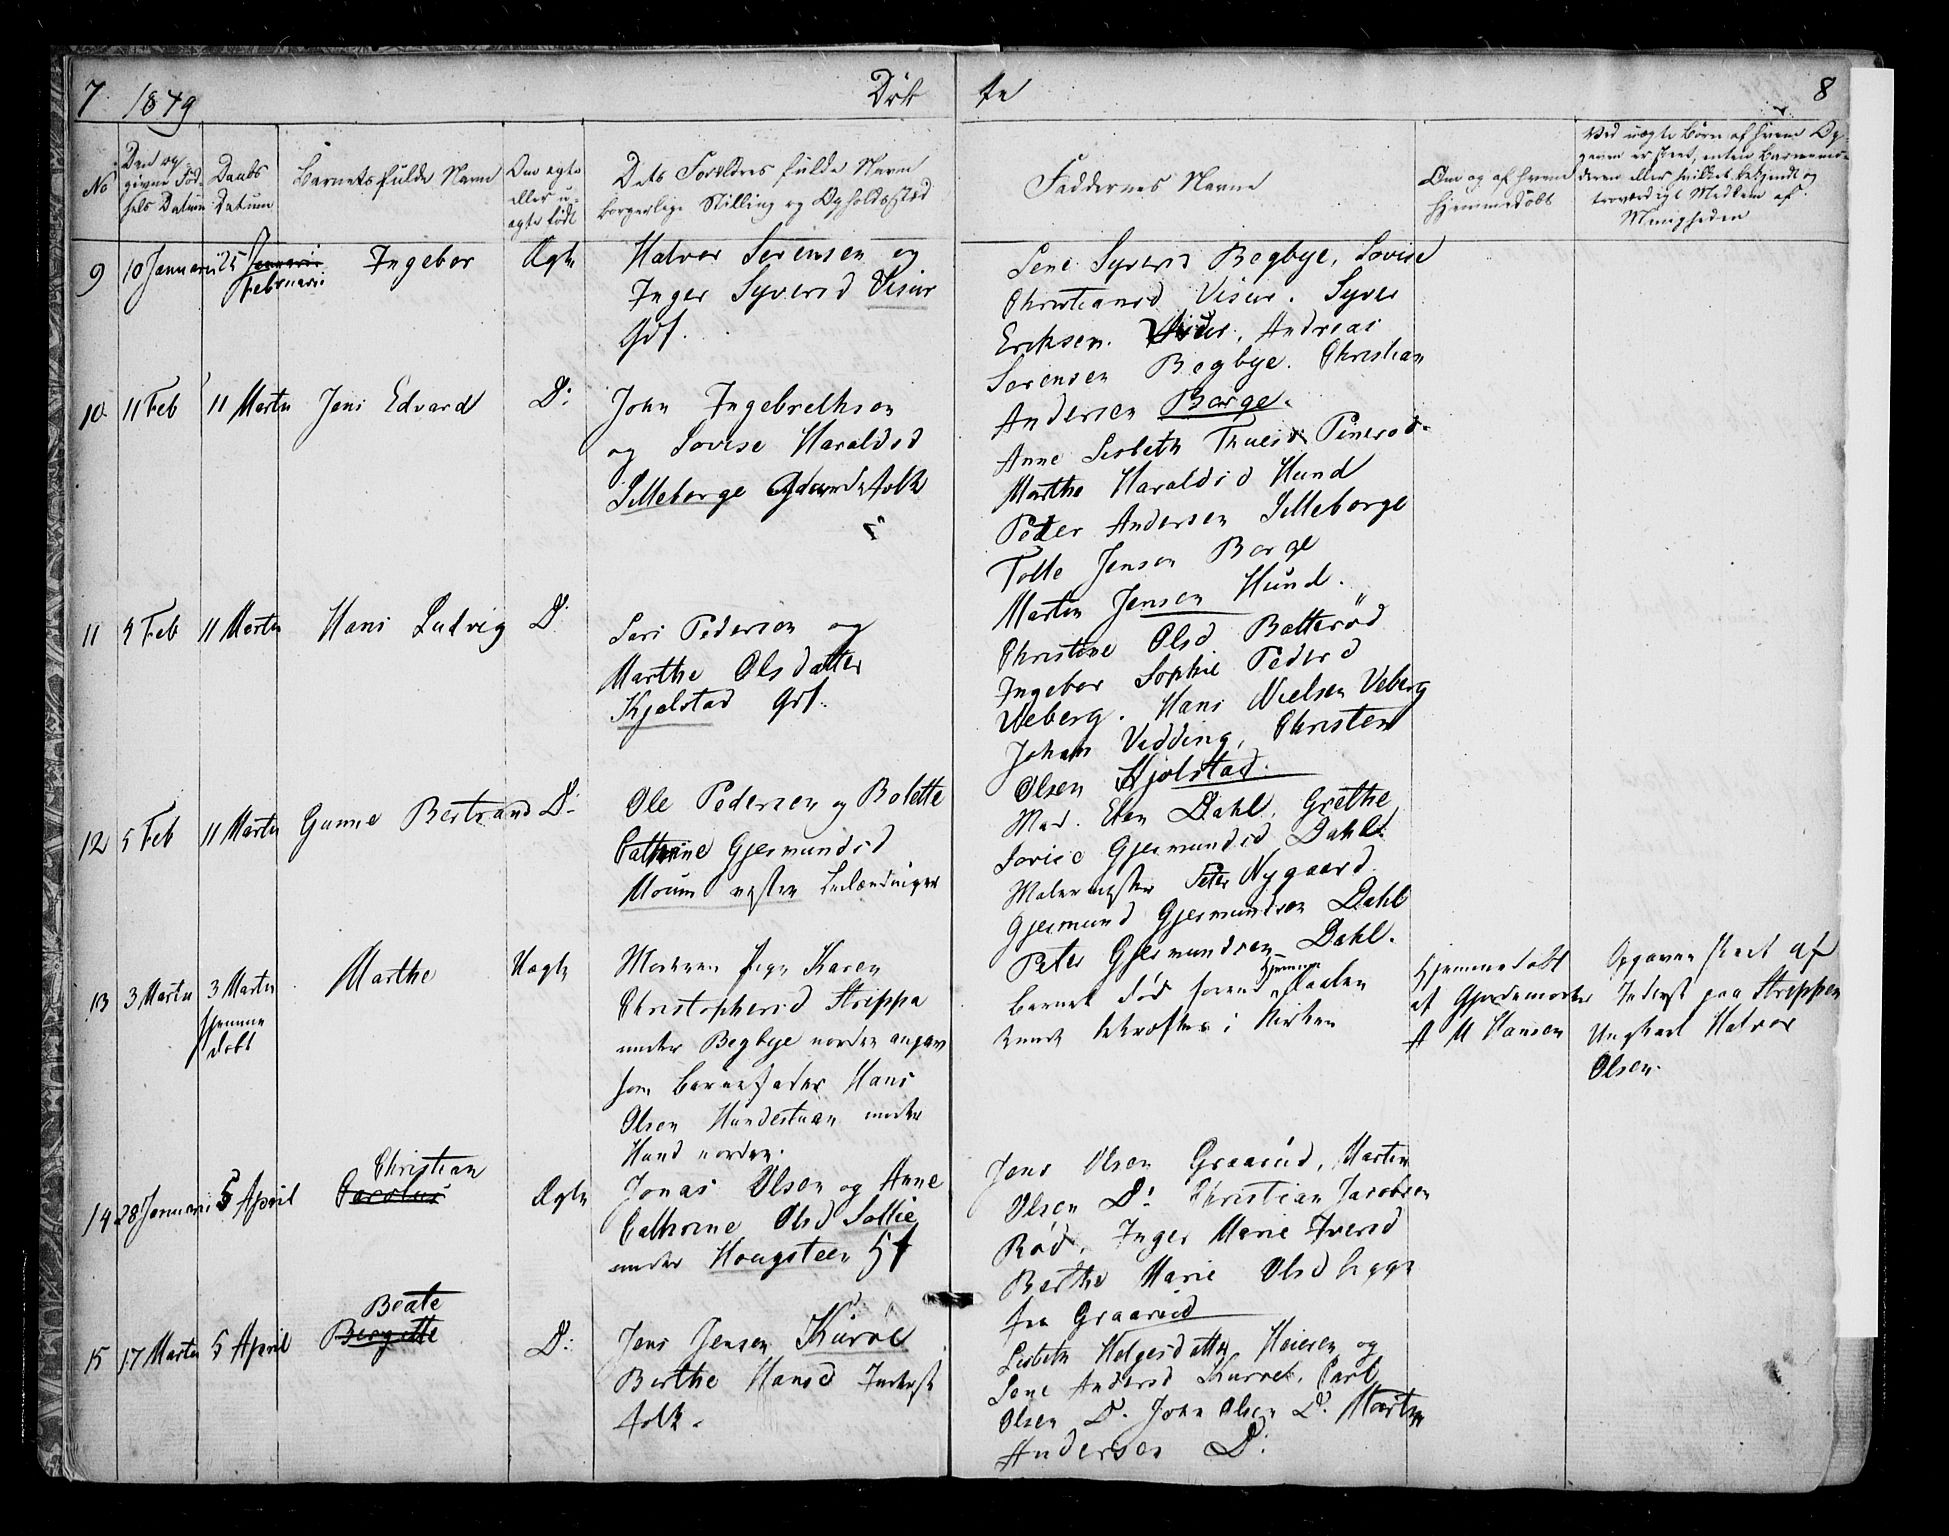 7 1849 Døb
te 8
No
Den op
givne Fød-
sels Datum
Daabs
Datum
Barnets fulde Navn
Om ægte
eller u-
ægte født
Dets Forældres fulde Navn
borgerlige Stilling og Opholdssted
Faddernes Navne
Om og af hvem
hjemmedøbt
Ved uægte Børn af hvem Op-
gaven er skeet, enten Barnemo-
deren eller hvilket bekjendt og
troværdigt Medlem af
Menigheden
9 10 Januarii 25 Januarii
Februarii
Ingebor
Ægte
Halvor Sørensen og
Inger Syversd Visur
Gdf.
Lene Syversd Begbye, Lovise
Christiansd Visur. Syver
Eriksen. Visur, Andreas
Sørensen Begbye. Christian
Andersen Borge.
10 11 Feb 11 Marts Jens Edvard D:
John Ingebrethsen
og Lovise Haraldsd
Lilleborge Gaardefolk
Anne Lisbeth Truesd Pinerød
Marthe Haraldsd Hund
Peder Andersen Lilleborge
Tolle Jensen Borge
Martin Jensen Hund.
11 9 Feb 11 Marts Hans Ludvig D:
Lars Pedersen og
Marthe Olsdatter
Kjølstad Gdf.
Christine Olsd Batterød
Ingebor Sophie Pedersd
Veberg. Hans Nielsen Veberg
Johan Vedding, Christen
Olsen Kjølstad.
12 5 Feb 11 Marts Gunne Bertrand D:
Ole Pedersen og Bolette
Cathrine Gjermundsd
Moum
Mad. Dahl, Grethe
Lovise Gjermundsd Dahl.
Malermester Peter Nygaard
Gjermund Gjermundsen Dahl
Peter Gjermundsen Dahl.
13 3 Marts 3 Marts
hjemme
døbt
Marthe
Uægte
Moderen Pige Karen
Christophersd Strippa
under Begbye norden angav
som Barnefader Hans
Olsen Hundestuen under
Hund norden.
Barnet død forend hjemmedaaben
kunde bekræftes i Kirken
hjemmedøbt
af Gjordemoder
A M Hansen
Opgaven skeet af
Inderst paa Strippen
Ungkarl Halvor
Olsen.
14 28 Januarii 5 April
Christian
Carolus
Ægte
Jonas Olsen og Anne
Cathrine Olsd Sollie
under Hougsteen
Jens Olsen Graarud, Martin
Olsen D: Christian Jacobsen
Rød, Inger Marie Iversd
Berthe Marie Olsd begge
fra Graarud
15 17 Marts 5 April
Beate
Bergitte
D:
Jens Jensen Kurøe
Berthe Hansd Inderst
folk.
Lisbeth Helgesdatter Heiern og
Lene Andersd Kurøe, Carl
Olsen D. John Olsen D. Martin
Andersen D: